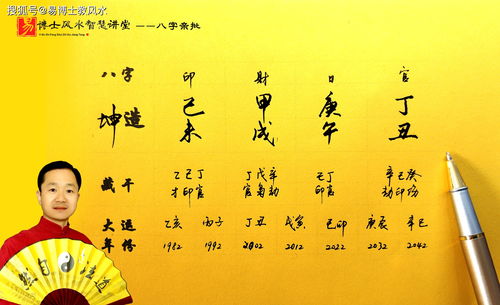 搜狐号@易博士救风水
易 博士风水智慧讲堂 ——八字亲批
八字 印 财 日 官
坤造 己 甲 庚 丁
未 戌 午 丑
藏干 乙己丁 丁戊辛 己丁 辛己癸
才印官 官枭劫 印官 劫印伤
大运 乙亥 丙子 丁丑 戊寅 己卯 庚辰 辛巳
年份 1982 1992 2002 2012 2022 2032 2042
然自法道